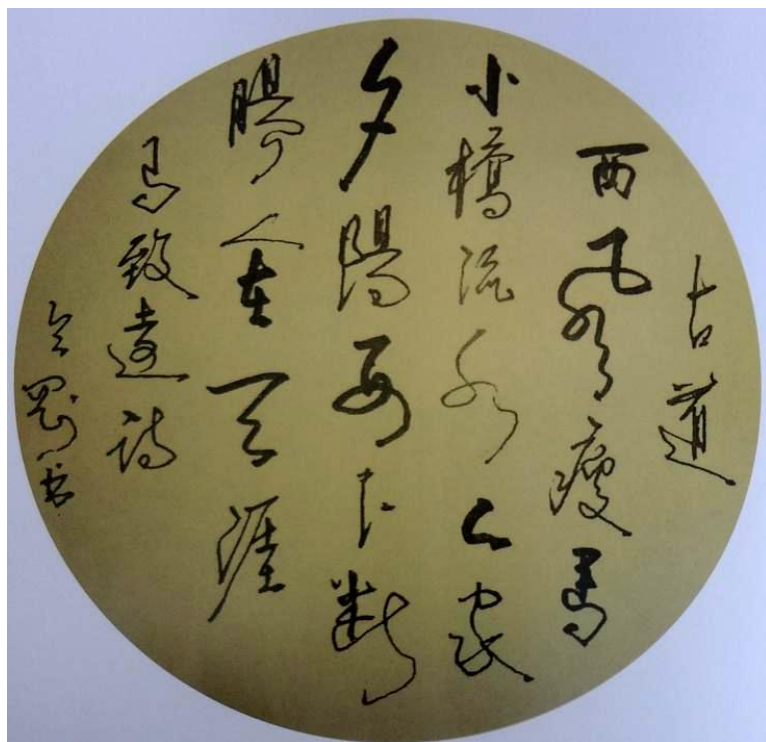 古道
西風瘦馬
小橋流水人家
夕陽西下斷
腸人在天涯
馬致遠詩
剛书